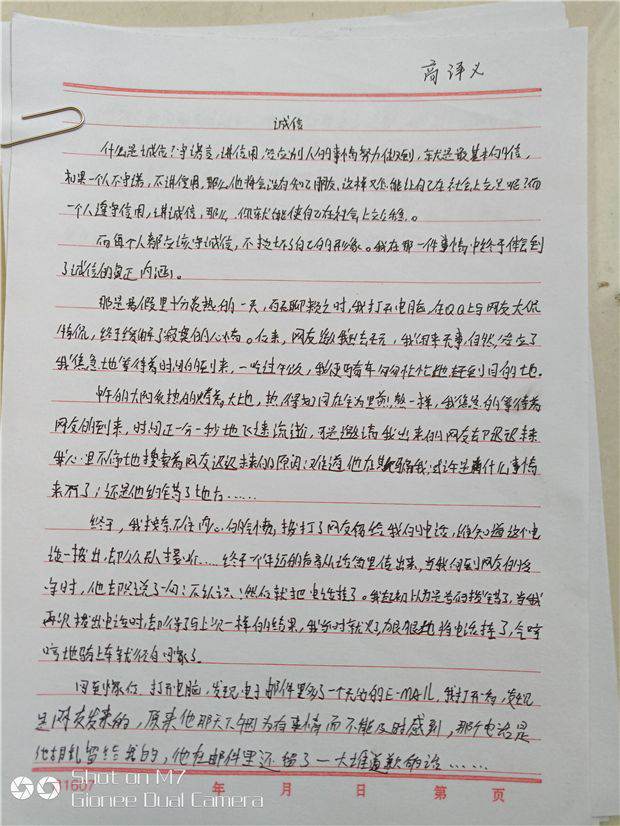 高译义
诚信
什么是诚信?守诺言,讲信用,答应别人的事情努力做到,就是最基本的诚信,
如果一个人不守诺,不讲信用,那么他将会没有知己朋友,这样又怎能让自己在社会上立足呢?而
一个人遵守信用,讲诚信,那么,你就能使自己在社会上立足。
而每个人都应该守诚信,不损坏了自己的形象。我在那一件事情中终于体会到
了诚信的真正内涵。
那是暑假里十分炎热的一天,百无聊赖之时,我打开电脑,在QQ上与网友大侃
特侃,终于缓解了寂寞的心情。后来,网友邀我出去玩,我闲来无事,自然答应了
我焦急地等待着时间的到来,一吃过午饭,我便骑车匆匆忙忙地赶到目的地。
中午的太阳炙热的烤着大地,热得如同在全为里煎熬一样,我焦急的等待着
网友的到来,时间正一分一秒地飞速流逝,可是邀请我出来的网友却迟迟未来
我心里不停地搜索着网友迟迟未来的原因:难道他在欺骗我;或许生有什么事情
来不了;还是他约错了地方……
终于,我按奈不住内心的冲动,拨打了网友留给我的电话,谁知道这个电
话一拨出,却久久无人接听……终于一个年迈的声音从话筒里传出来,当我问到网友的姓
名时,他却只说了一句:不认识!然后就把电话挂了。我起初以为是号码拨错了,当我
再次拨出电话时,却得了与上次一样的结果,我顿时就火了,狠狠地将电话挂了,气呼
呼地骑上车就径自回家了。
回到家后,打开电脑,发现电子邮件里多了一个未知的E-MAIL,我打开一看,发现
是网友发来的,原来他那天下午因为有事情而不能及时感到,那个电话是
他胡乱留给我的,他在邮件里还留了一大堆道歉的话……
11607 年 月 日 第 页
Shot on M7
Gionee Dual Camera